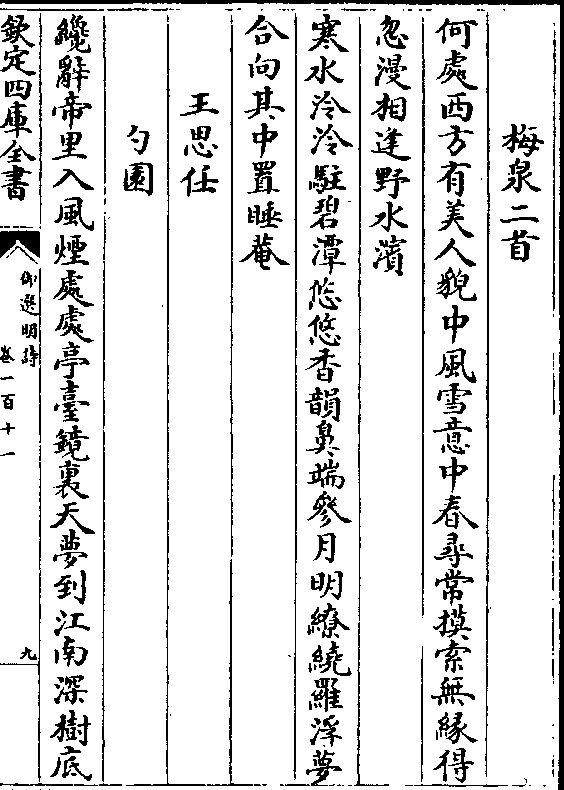 梅泉二首
何處西方有美人貌中風雪意中春尋常摸索無縁得
忽漫相逢野水濱
寒水泠泠駐碧潭悠悠香韻鼻端參月明繚繞羅浮夢
合向其中置睡菴
王思任
勺園
纔辭帝里入風煙處處亭臺鏡裏天夢到江南深樹底
欽定四庫全書
御選明詩
卷一百十一
九